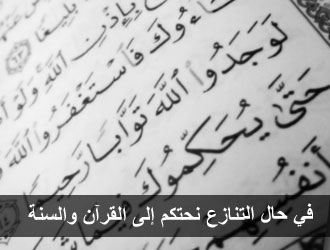 بِإِذْنِ ٱللَّهِ وَلَوْ
فَٱسْتَغْفَرُوا۟ ٱللَّهَ
لَوَجَدُوا۟ ٱللَّهَ تَوَّابًا رَّحِيمًا
حَتَّىٰ يُحَكِّمُوكَ فِيمَا
في حال التنازع نحتكم إلى القرآن والسنة